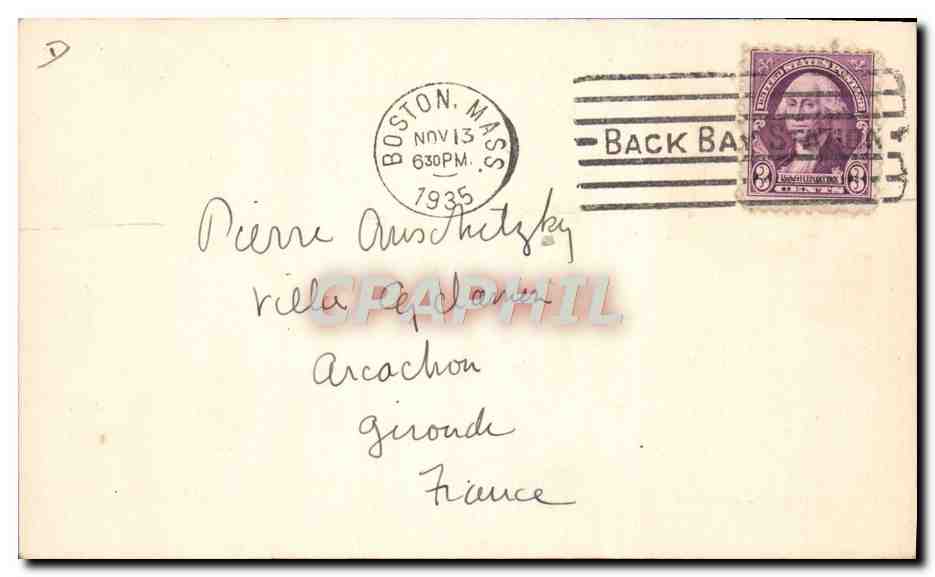 D
BOSTON, MASS.
NOV 13
630 PM.
1935
BACK BAY STATION
UNITED STATES POSTAGE
3 3
CENTS
Pierre Anschitzky
Villa Cyclamen
CPAPHIL
Arcachon
Gironde
France